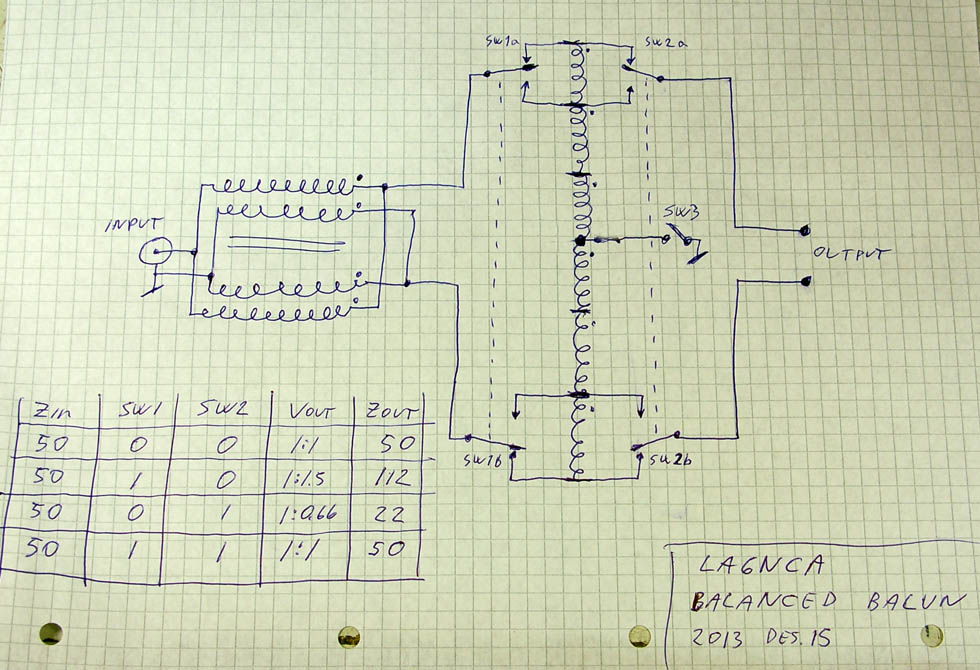 SW1a
SW2a
INPUT
SW3
OUTPUT
SW1b
SW2b
ZIN SW1 SW2 VOUT ZOUT
50 0 0 1:1 50
50 1 0 1:1.5 112
50 0 1 1:0.66 22
50 1 1 1:1 50
LA6NCA
BALANCED BALUN
2013 DES. 15